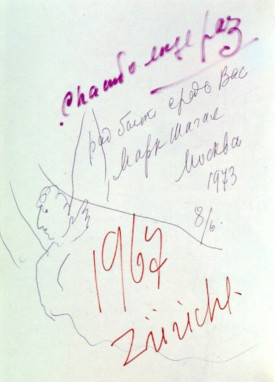 Спасибо еще раз
рад быть средь Вас
Марк Шагал
Москва
1973
8/6.
1967
Zürich.